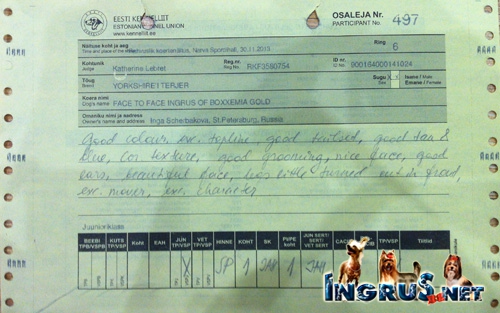 EESTI KENNELLIIT
ESTONIAN KENNEL UNION
www.kennelliit.ee
OSALEJA Nr.
PARTICIPANT No. 497
Näituse koht ja aeg
Time and place of the
koertenäitus, Narva Spordihall, 30.11.2013
Ring 6
Kohtunik
Judge
Katherine Lebret
Reg.nr
Reg.No.
RKF3560754
ID nr
ID No.
900164000141024
Tõug
Breed
YORKSHIRE TERJER
Sugu
Sex
Isane / Male
Emane / Female
Koera nimi
Dog's name
FACE TO FACE INGRUS OF BOXXEMIA GOLD
Omaniku nimi ja aadress
Owner's name and address
Inga Scherbakova, St.Petersburg, Russia
Good colour, exc. topline, good tailset, good tan &
blue, cor. texture, good grooming, nice face, good
ears, beautiful face, little turned out in front,
exc. mover, exc. character
Juuniorklass
BEEBI TP/VSP KUTS TP/VSP Koht EAH JUN TP/VSP VET TP/VSP HINNE KOHT SK PI/PE koht JUN SERT/ SERT/ VET SERT CAC TP/VSP Tiitlid
SP 1 1
INGRUS.NET